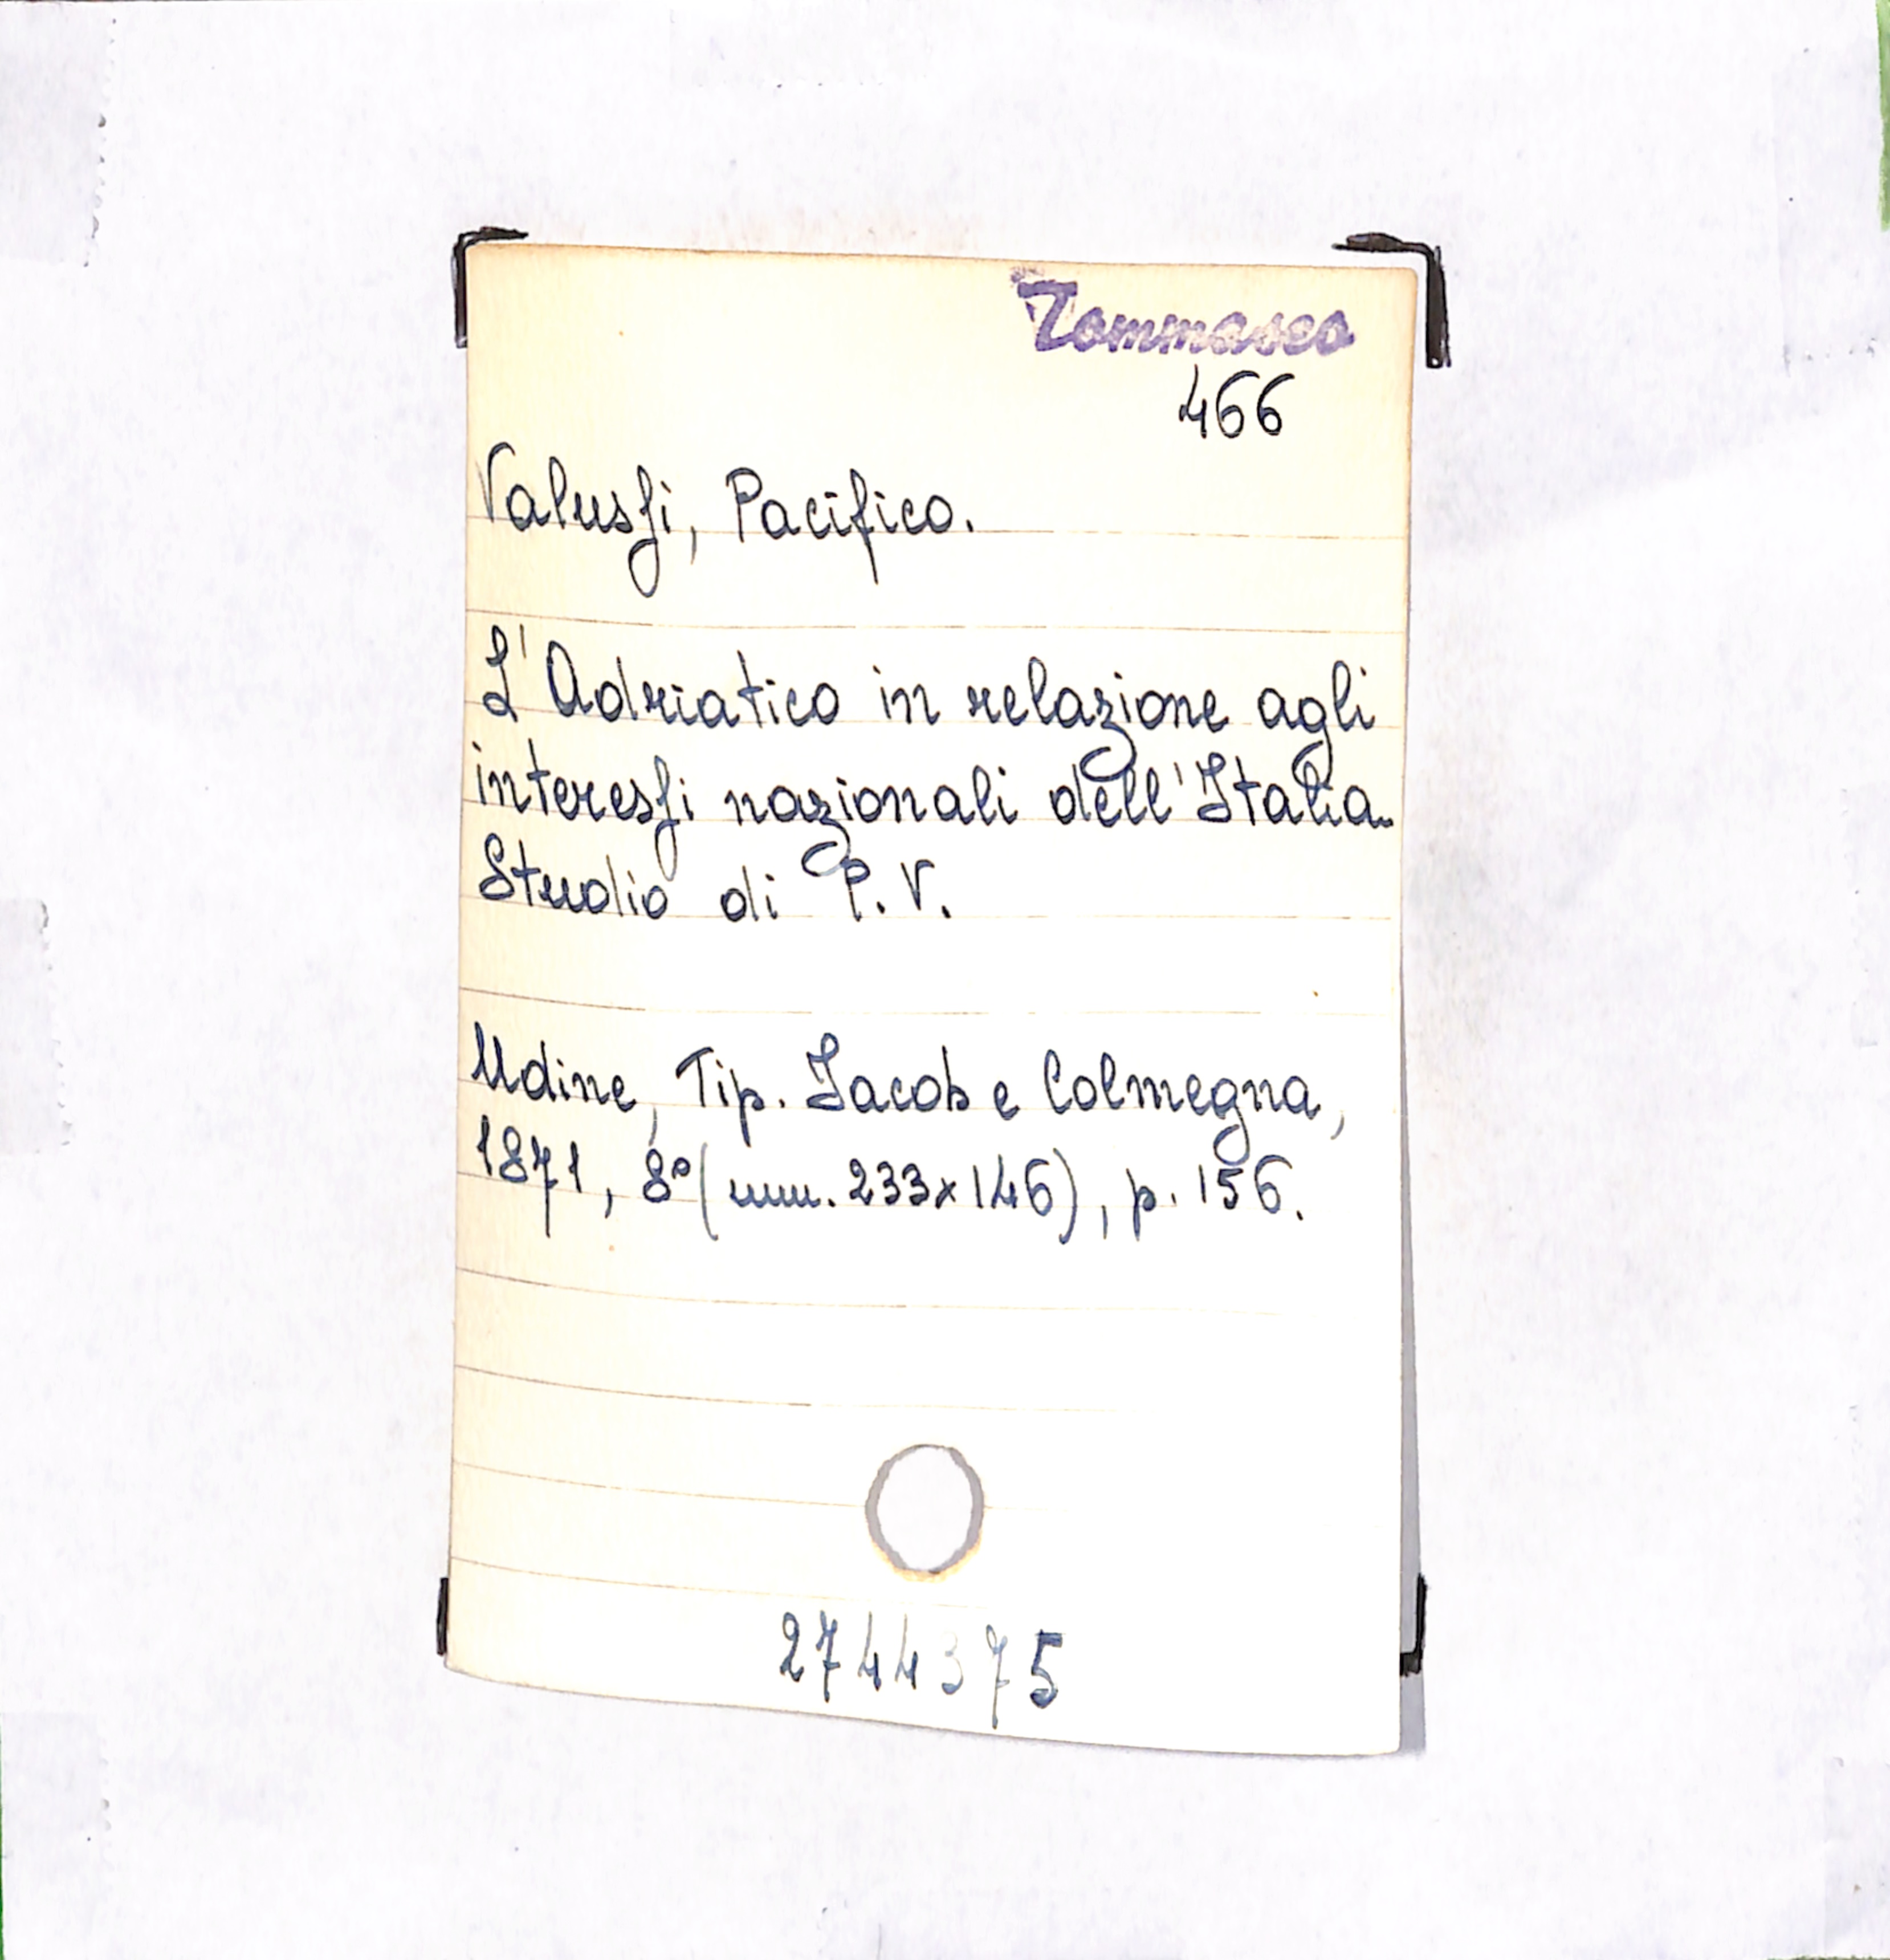 Tommaseo
466
Valussi, Pacifico.
L'Adriatico in relazione agli
interessi nazionali dell'Italia.
Studio di P. V.
Udine, Tip. Jacob e Colmegna,
1871, 8° (mm. 233x146), p. 156.
2744375